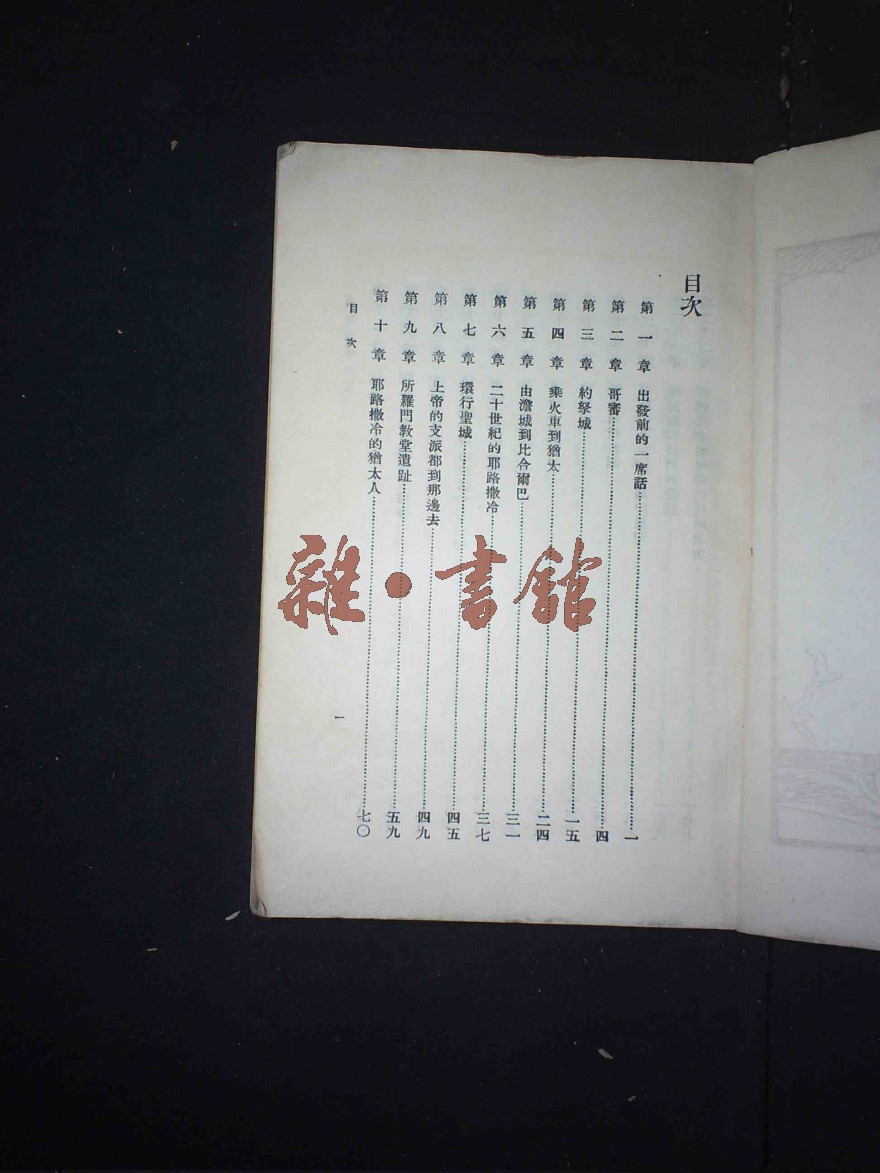 目次
第一章 出發前的一席話……一
第二章 哥審……四
第三章 約拏城……一五
第四章 乘火車到猶太……二四
第五章 由澹城到比合爾巴……三一
第六章 二十世紀的耶路撒冷……三七
第七章 環行聖城……四五
第八章 上帝的支派都到那邊去……四九
第九章 所羅門教堂遺趾……五九
第十章 耶路撒冷的猶太人……七〇
目次
一
雜·書館